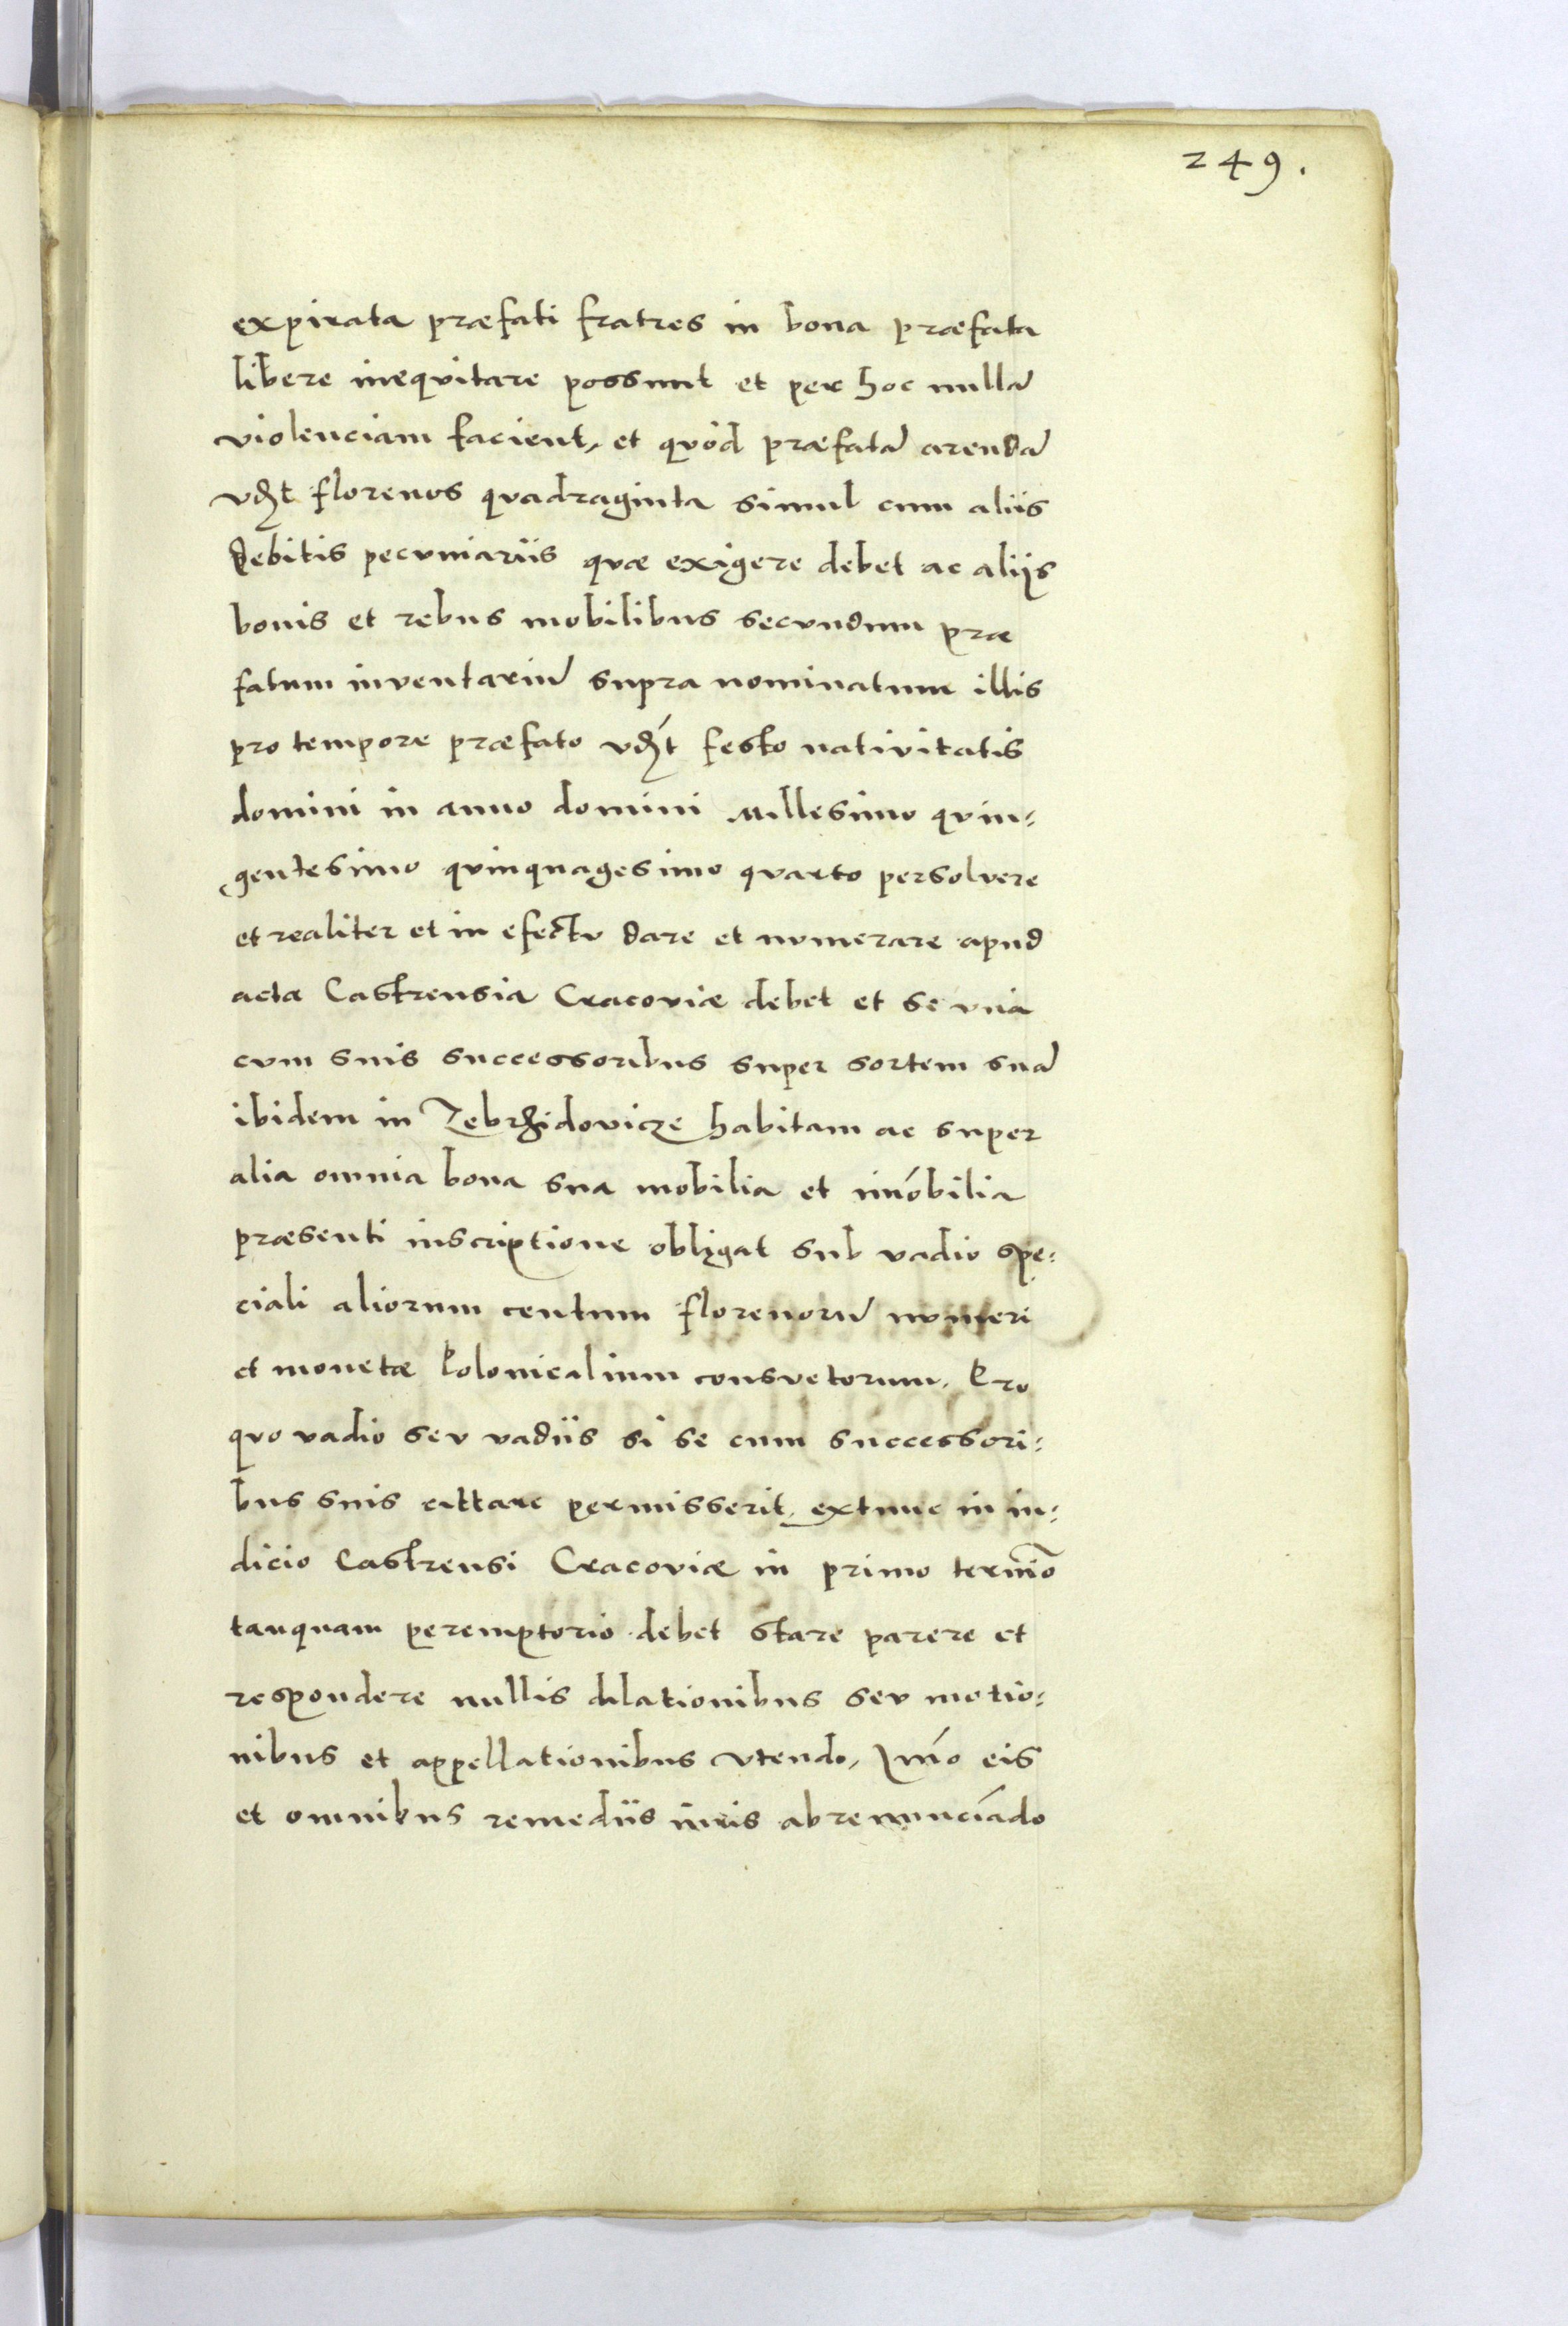 249.
expirata præfati fratres in bona præfata
libere inequitare possunt et per hoc nullā
violenciam facient, et quòd præfatā arendā
vdȝt florenos quadraginta simul cum aliis
debitis pecuniariis quæ exigere debet ac aliis
bonis et rebus mobilibus secundum præ
fatum inventariū supra nominatum illis
pro tempore præfato vdȝt festo nativitatis
domini in anno domini Millesimo quin⸗
gentesimo quinquagesimo quarto persolvere
et realiter et in efectu dare et numerare apud
acta Castrensia Cracoviæ debet et se una
cum suis successoribus super sortem suā
ibidem in Zebrzidovicze habitam ac super
alia omnia bona sua mobilia et im̄obilia
præsenti inscriptione obligat sub vadio spe⸗
ciali aliorum centum florenorū numeri
et monetæ Polonicalium consuetorum. Pro
quo vadio seu vadiis si se cum successori⸗
bus suis cittare permisserit, extunc in iu⸗
dicio Castrensi Cracoviæ in primo termīo
tanquam peremptorio debet stare parere et
respondere nullis dilationibus seu motio⸗
nibus et appellationibus utendo, Im̄o eis
et omnibus remediis iuris abrenunciādo